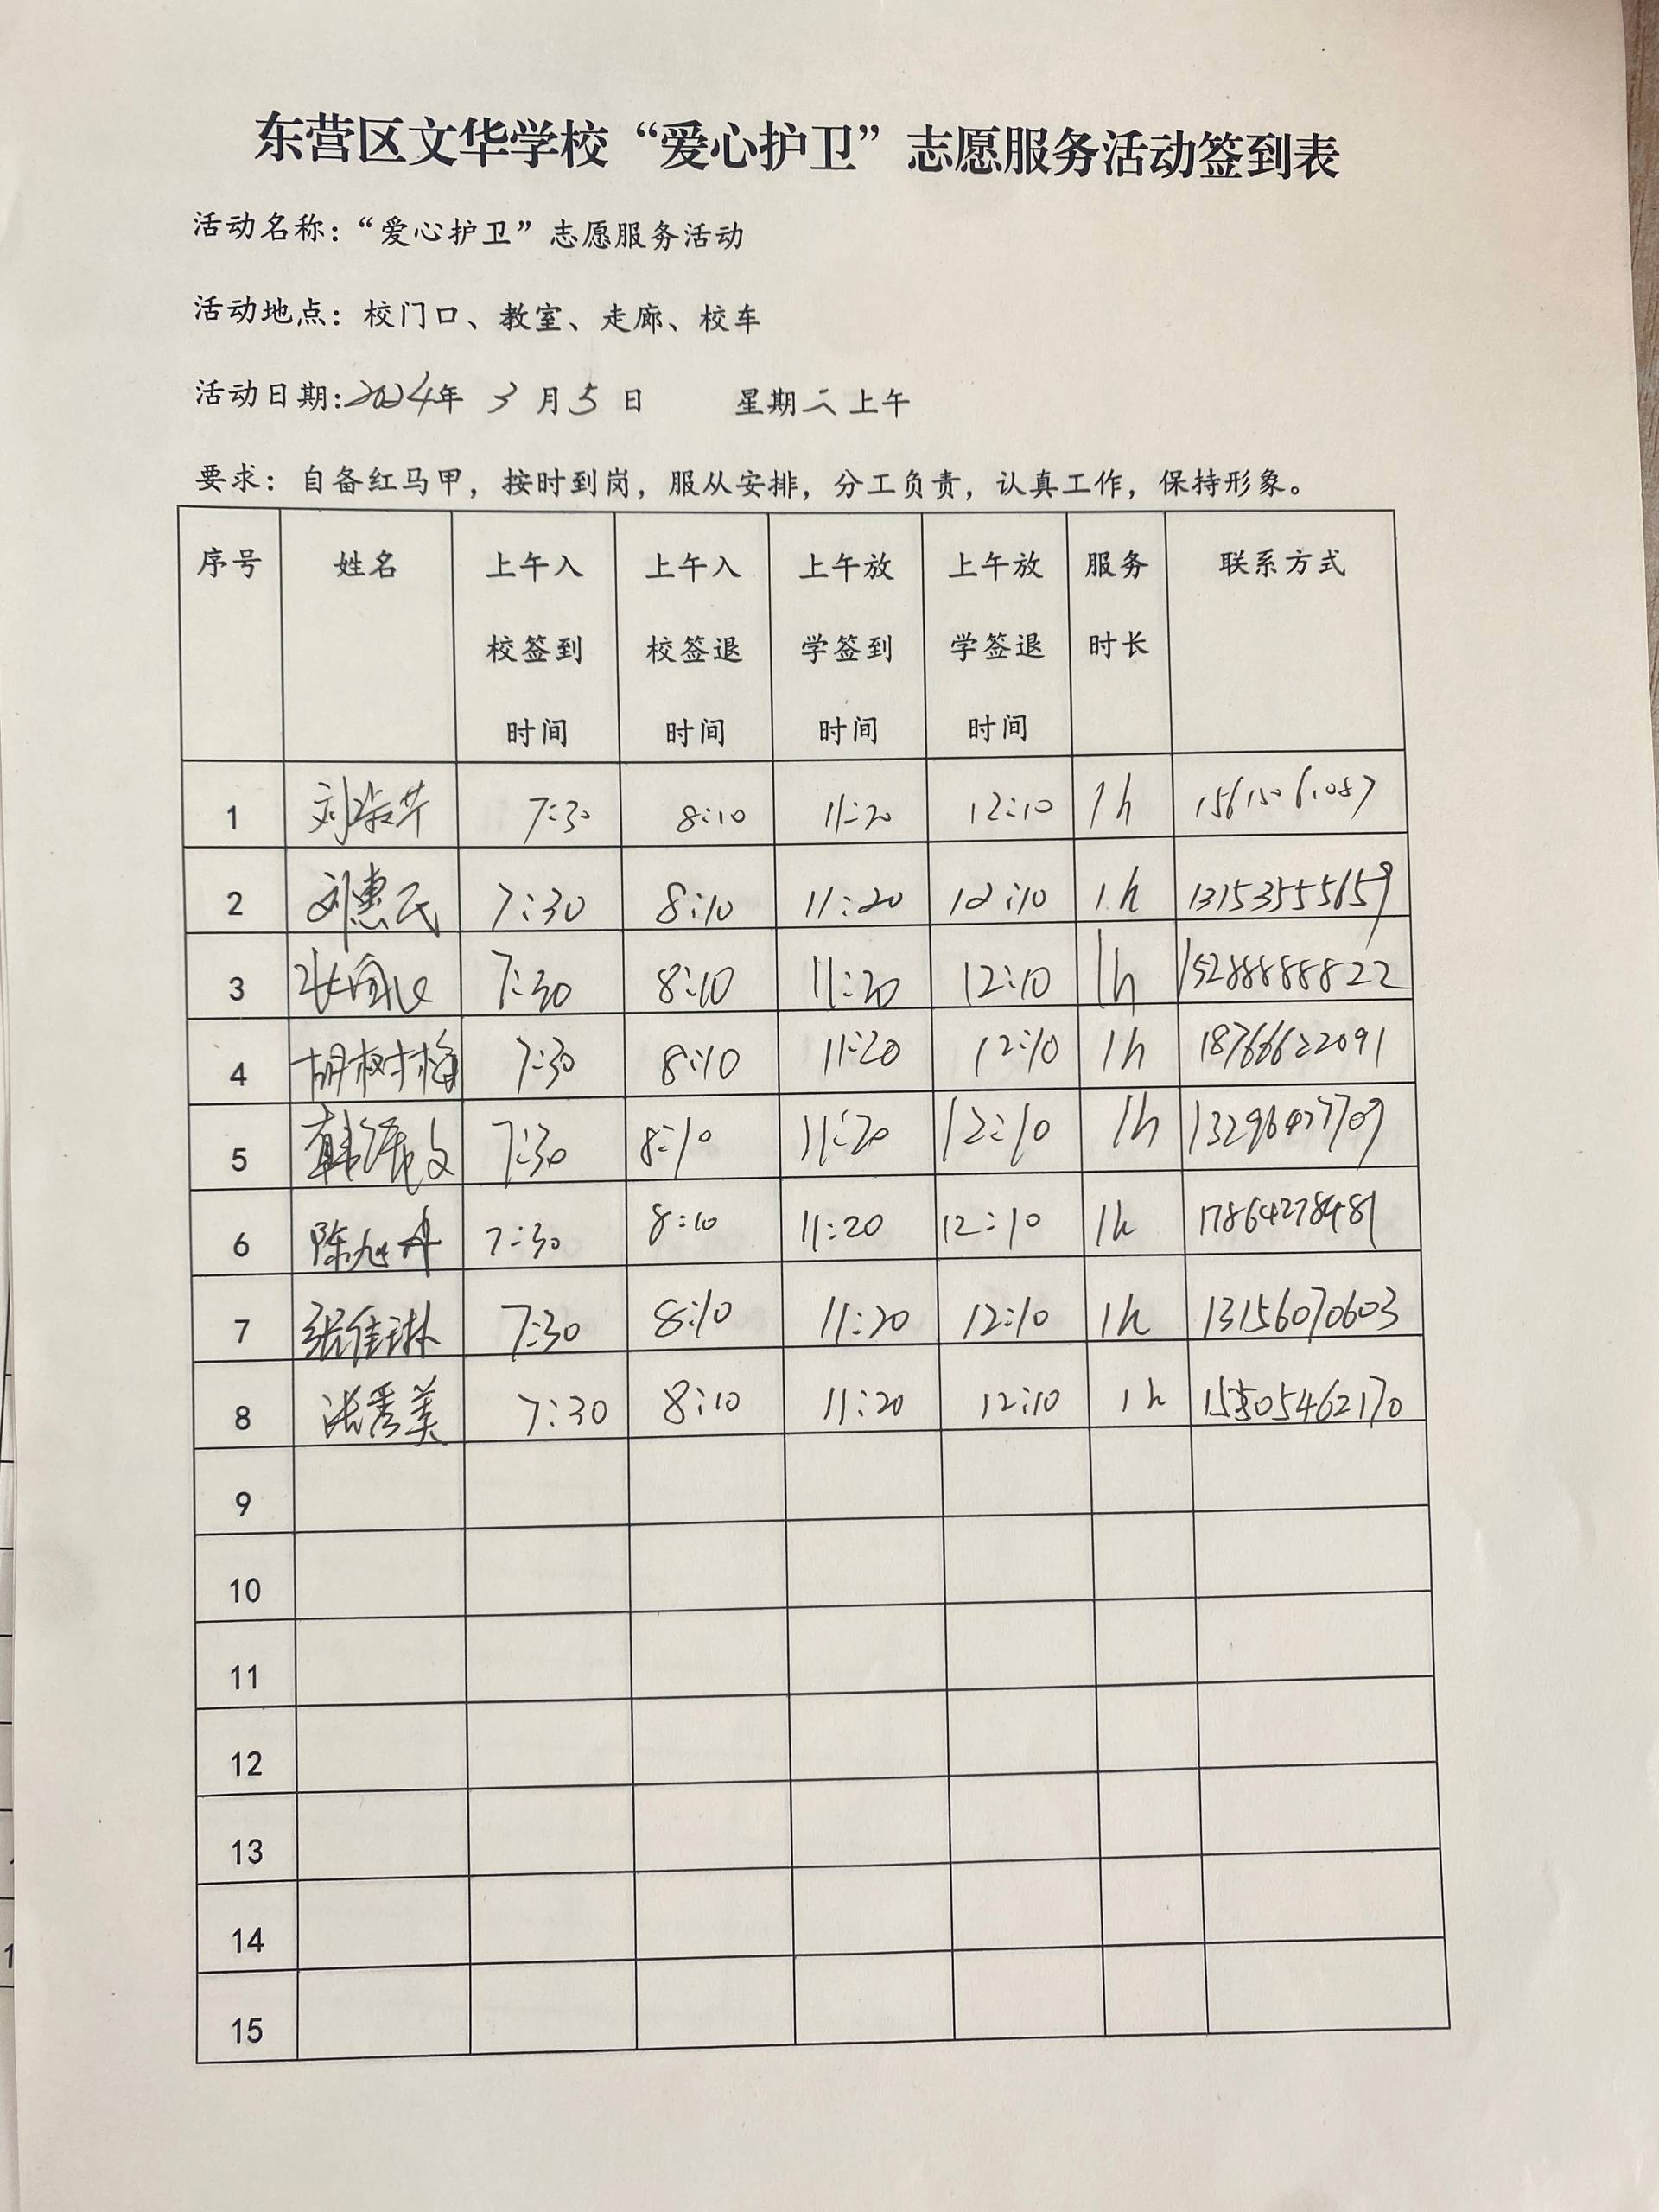 东营区文华学校“爱心护卫”志愿服务活动签到表
活动名称：“爱心护卫”志愿服务活动
活动地点：校门口、教室、走廊、校车
活动日期：2024年 3 月 5 日 星期二上午
要求：自备红马甲，按时到岗，服从安排，分工负责，认真工作，保持形象。
序号 姓名 上午入校签到时间 上午入校签退时间 上午放学签到时间 上午放学签退时间 服务时长 联系方式
1 刘淑芹 7:30 8:10 11:20 12:10 1h 15615061087
2 刘惠民 7:30 8:10 11:20 12:10 1h 13153555659
3 7:30 8:10 11:20 12:10 1h 15288888822
4 胡树梅 7:30 8:10 11:20 12:10 1h 18766622091
5 韩振文 7:30 8:10 11:20 12:10 1h 13296427709
6 陈旭丹 7:30 8:10 11:20 12:10 1h 17864278481
7 张佳琳 7:30 8:10 11:20 12:10 1h 13156070603
8 张秀美 7:30 8:10 11:20 12:10 1h
9
10
11
12
13
14
15